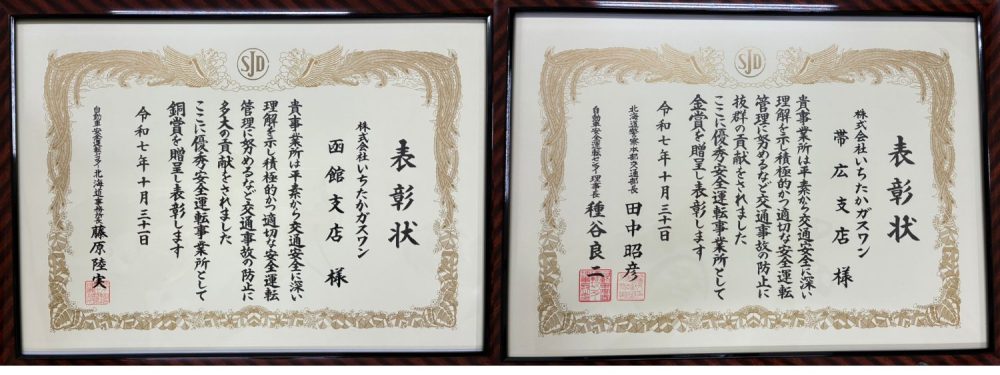 SJD
表彰状
株式会社いちたかガスワン
函館支店 様
貴事業所は平素から交通安全に深い
理解を示し積極的かつ適切な安全運転
管理に努めるなど交通事故の防止に
多大の貢献をされました
ここに優秀安全運転事業所として
銅賞を贈呈し表彰します
令和七年十月三十一日
自動車安全運転センター北海道事務所長 藤原陸実
SJD
表彰状
株式会社いちたかガスワン
帯広支店 様
貴事業所は平素から交通安全に深い
理解を示し積極的かつ適切な安全運転
管理に努めるなど交通事故の防止に
抜群の貢献をされました
ここに優秀安全運転事業所として
金賞を贈呈し表彰します
令和七年十月三十一日
北海道警察本部交通部長 田中昭彦
自動車安全運転センター理事長 種谷良二